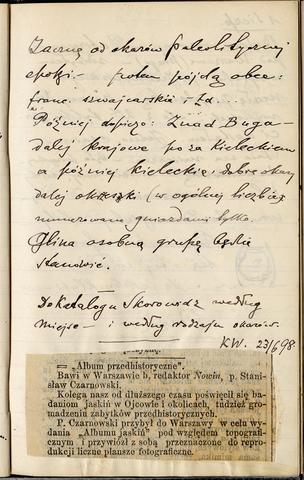 Zacznę od okazów paleolitycznej
epoki. – potem pójdą obce
franc. szwajcarskie i t.d...
Później dopiero: Znad Buga –
dalej krajowe poza Kieleckiem
a później kieleckie, dobre okazy
dalej okrzeski (w ogólnej liczbie)
numerowane gniazdami tylko.
Glina osobną grupę będzie
stanowić.
Do Katalogu Skorowidz według
miejsc – i według rodzaju okazów.
KW. 23/6 98.
= „Album przedhistoryczne”.
Bawi w Warszawie b. redaktor Nowin, p. Stani-
sław Czarnowski.
Kolega nasz od dłuższego czasu poświęcił się ba-
daniom jaskiń w Ojcowie i okolicach, tudzież gro-
madzeniu zabytków przedhistorycznych.
P. Czarnowski przybył do Warszawy w celu wy-
dania „Albumu jaskiń” pod względem topografi-
cznym i przywiózł z sobą przeznaczone do repro-
dukcji liczne plansze fotograficzne.